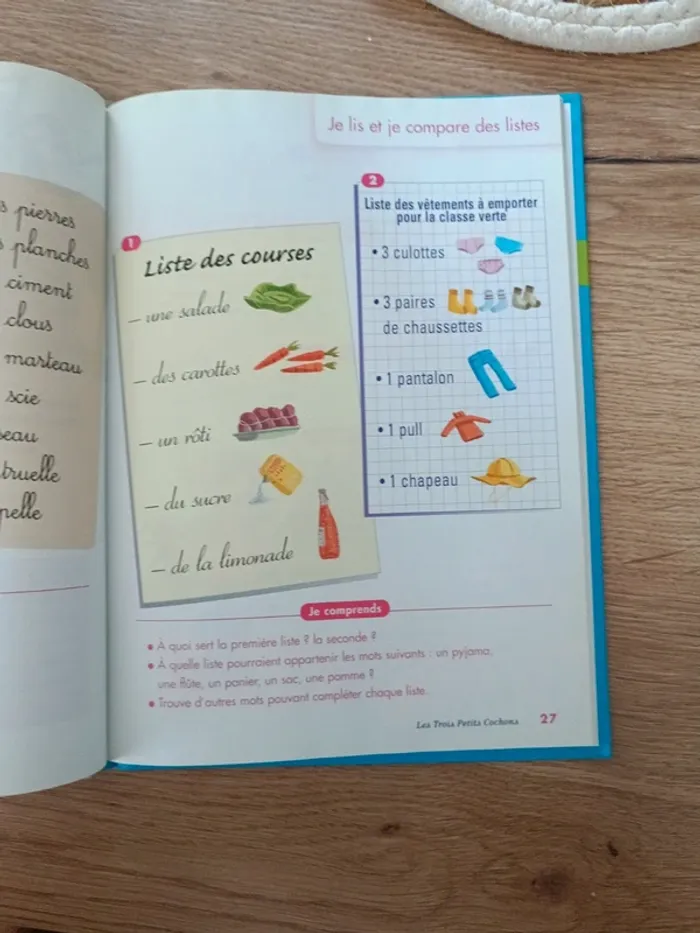 pierres
planches
ciment
clous
marteau
scie
truelle
Je lis et je compare des listes
1
Liste des courses
– une salade
– des carottes
– un rôti
– du sucre
– de la limonade
2
Liste des vêtements à emporter
pour la classe verte
• 3 culottes
• 3 paires
de chaussettes
• 1 pantalon
• 1 pull
• 1 chapeau
Je comprends
• À quoi sert la première liste ? la seconde ?
• À quelle liste pourraient appartenir les mots suivants : un pyjama,
une flûte, un panier, un sac, une pomme ?
• Trouve d'autres mots pouvant compléter chaque liste.
Les Trois Petits Cochons 27